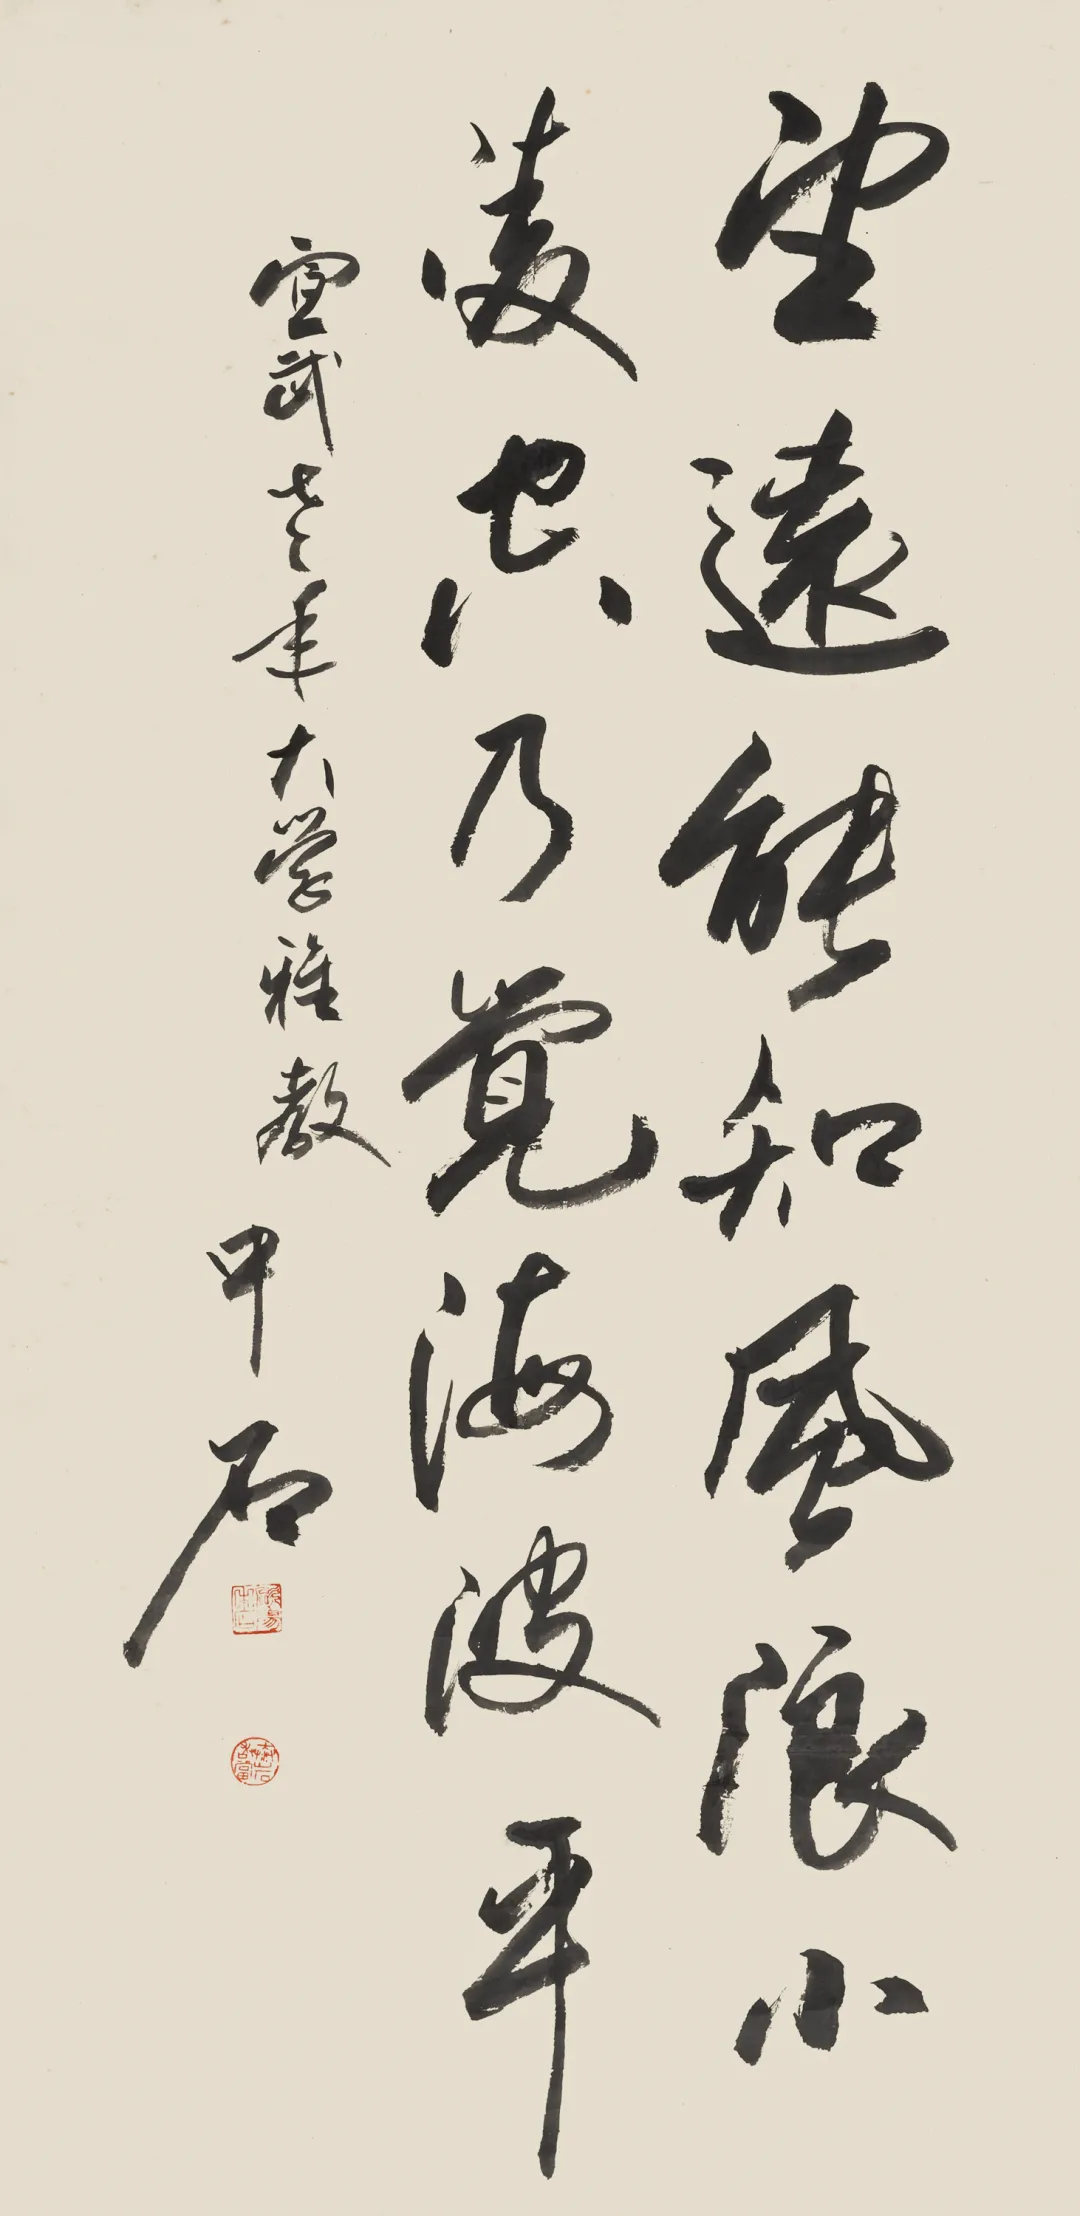 望遠能知風浪小
凌空乃覺海波平
宣武老年大学雅教
中石